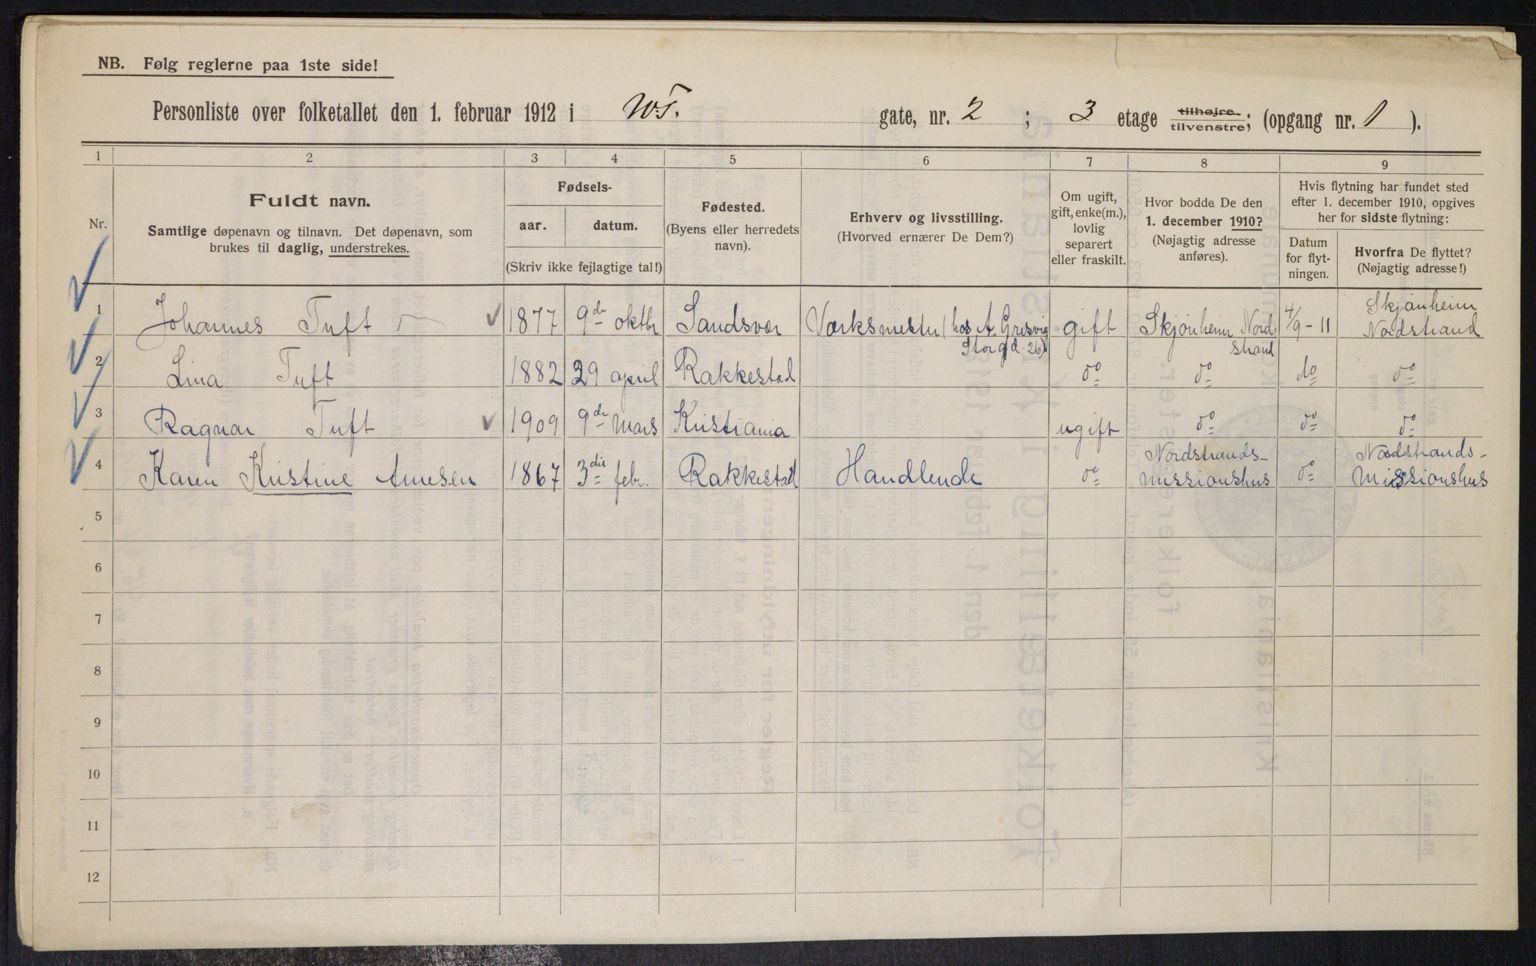 NB. Følg reglerne paa 1ste side!
Personliste over folketallet den 1. februar 1912 i WT. gate, nr. 2 ; 3 etage tilhøjre, tilvenstre; (opgang nr. 1 ).
1 2 3 4 5 6 7 8 9
Nr.
Fuldt navn.
Samtlige døpenavn og tilnavn. Det døpenavn, som
brukes til daglig, understrekes.
Fødsels-
aar. datum.
(Skriv ikke fejlagtige tal!)
Fødested.
(Byens eller herredets
navn).
Erhverv og livsstilling.
(Hvorved ernærer De Dem?)
Om ugift,
gift, enke(m.),
lovlig
separert
eller fraskilt.
Hvor bodde De den
1. december 1910?
(Nøjagtig adresse
anføres).
Hvis flytning har fundet sted
efter 1. december 1910, opgives
her for sidste flytning:
Datum
for flyt-
ningen.
Hvorfra De flyttet?
(Nøjagtig adresse!)
1 Johannes Tuft 1877 9de oktbr Sandsver Værksmester (hos A. Gresvig Storgd. 26) gift Skjønheim Nordstrand 4/9 - 11 Skjønheim Nordstrand
2 Lina Tuft 1882 29 april Rakkestad do do do do
3 Ragnar Tuft 1909 9de Mars Kristiania ugift do do do
4 Karen Kristine Arnesen 1867 3die febr. Rakkestad Handlende do Nordstrands- missionshus do Nordstrands- Missionshus
5
6
7
8
9
10
11
12